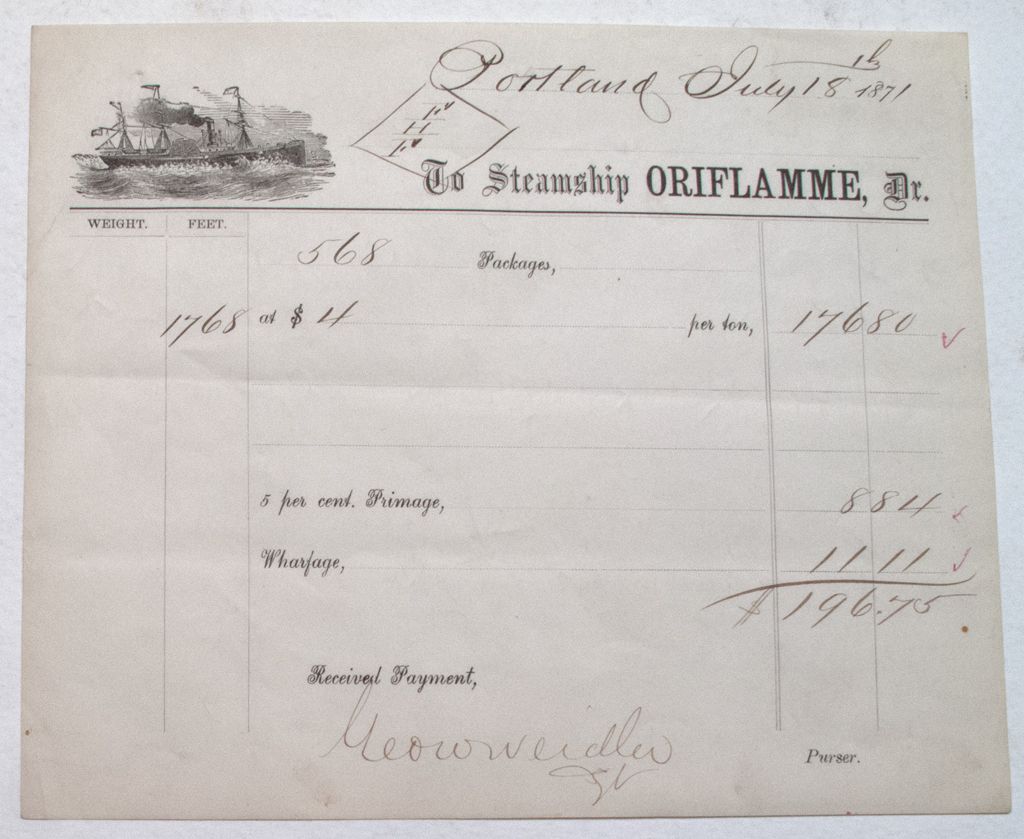 Portland July 18th 1871
To Steamship ORIFLAMME, Dr.
WEIGHT. FEET.
568 Packages,
1768 at $ 4 per ton, 176 80
5 per cent. Primage, 8 84
Wharfage, 11 11
$ 196.75
Received Payment,
Geo W Weidler
Purser.